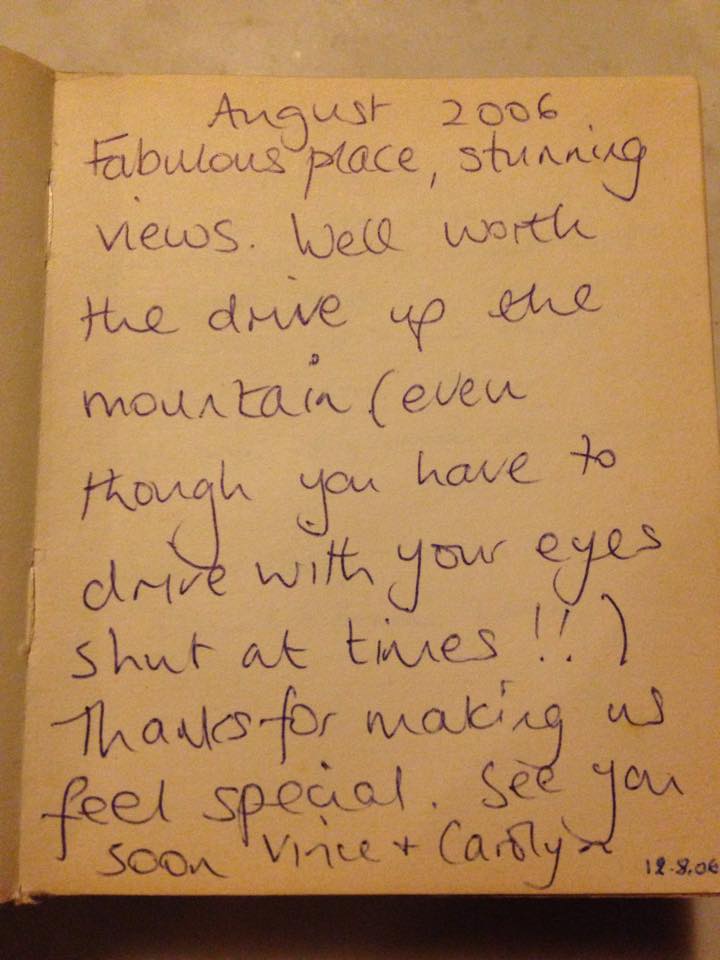 August 2006
Fabulous place, stunning
views. Well worth
the drive up the
mountain (even
though you have to
drive with your eyes
shut at times !! )
Thanks for making us
feel special. See you
soon Vince + Carolyn
12.8.06